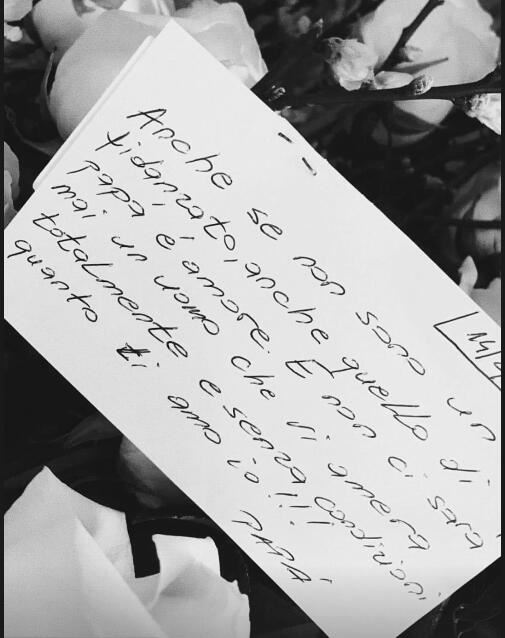 Anche se non sono un
fidanzato, anche quello di
papà è amore. E non ci sarà
mai un uomo che vi amerà
totalmente e senza condizioni
quanto ti amo io!!!
PAPÀ